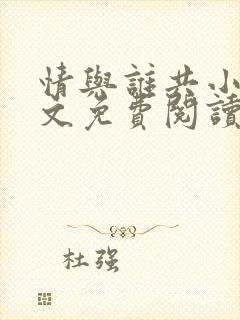 情與誰共小
文免費閱讀
杜強